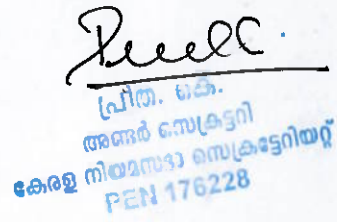 പ്രീത. കെ.
അണ്ടർ സെക്രട്ടറി
കേരള നിയമസഭാ സെക്രട്ടേറിയറ്റ്
PEN 176228